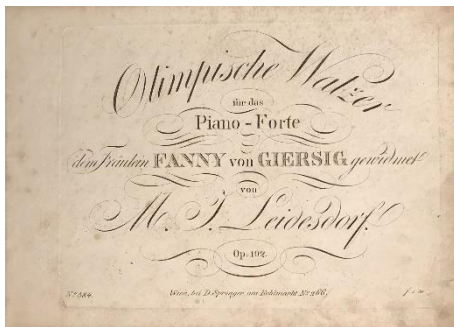 Olimpische Walzer
für das
Piano-Forte
dem Fräulein FANNY von GIERSIG gewidmet
von
M. J. Leidesdorf.
Op: 192.
Wien, bei D. Sprenger am Kohlmarkt